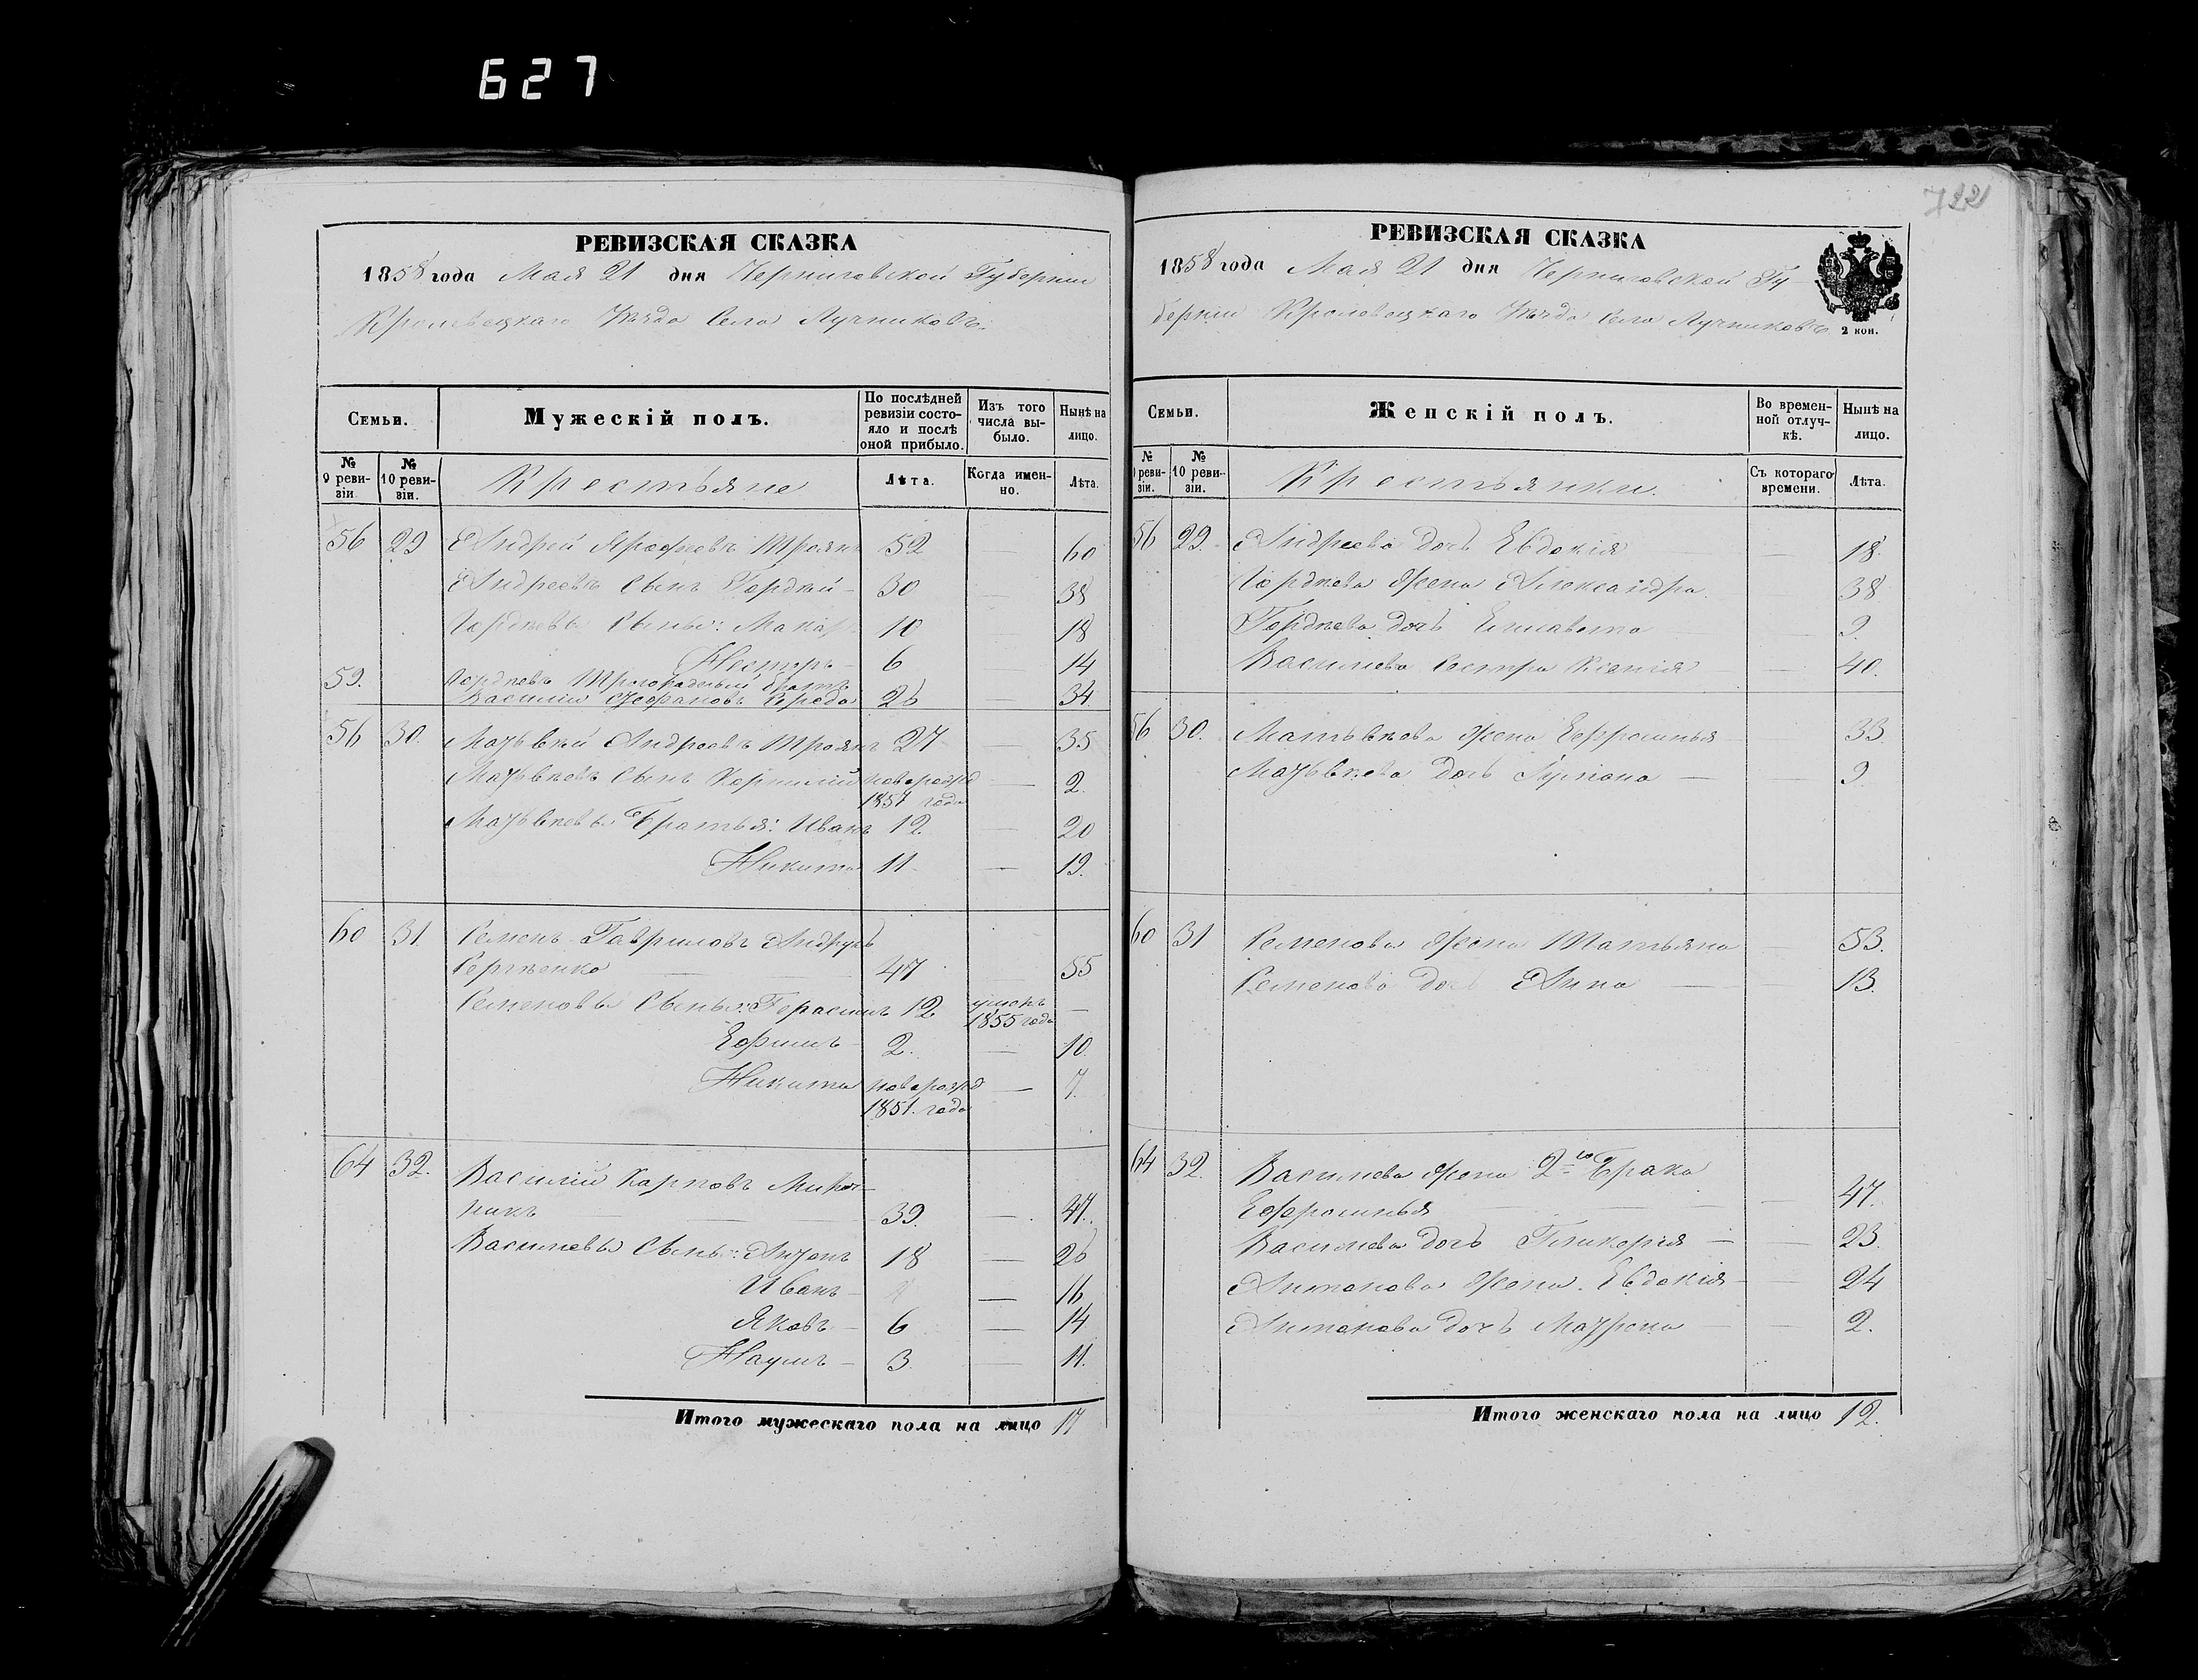 627
РЕВИЗСКАЯ СКАЗКА
1858 года Мая 21 дня Черниговской Губернии
Кролевецкаго Уѣзда Села Лучниковъ.
Семьи.
Мужескій полъ.
По послѣдней ревизіи состояло и послѣ оной прибыло.
Изъ того числа выбыло.
Нынѣ на лицо.
№ 9 ревизіи
№ 10 ревизіи.
Крестьяне
Лѣта.
Когда именно.
Лѣта.
56 29 Андрей Ярофеевъ Троянъ 52 — 60
Андреевъ Сынъ Гордѣй 30 — 38
Гордѣевы Сыны: Макаръ 10 — 18
Несторъ 6 — 14
59. Гордѣевъ Троюродный братъ
Василій Стефановъ Середа 26 34
56 30. Матвѣй Андреевъ Троянъ 27 — 35
Матвѣевъ Сынъ Корнилій новорожд — 2.
1857 года
Матвѣевы Братья: Иванъ 12. — 20
Никита 11 — 19.
60 31. Семенъ Гавриловъ Андрусь
Сергѣенко — 47 55
Семеновы Сыны: Герасимъ 12 умеръ —
1855 года
Ефимъ 2. — 10.
Никита новорожд — 7.
1851. года
64 32. Василій Карповъ
никъ — 39. — 47.
Васильевы Сыны: Антонъ 18 — 26
Иванъ — 16
Яковъ — 6 — 14
Наумъ — 3. — 11.
Итого мужескаго пола на лицо 17
722
РЕВИЗСКАЯ СКАЗКА
1858 года Мая 21 дня Черниговской Гу-
берніи Кролевецкаго Уѣзда Села Лучниковъ.
2 коп.
Семьи.
Женскій полъ.
Во временной отлучкѣ.
Нынѣ на лицо.
№ 9 ревизіи.
№ 10 ревизіи.
Крестьянки.
Съ котораго времени.
Лѣта.
56 29. Андреева дочь Евдокія — 18.
Гордѣева Жена Александра 38
Гордѣева дочь Елисавета 9.
Васильева Сестра Ксенія — 40.
56 30. Матвѣева Жена Ефросинья 33.
Матвѣева дочь Ульяна — 9.
60 31 Семенова Жена Татьяна 53.
Семенова дочь Анна — 13.
64 32. Васильева Жена 2го Брака
Ефросинья — 47.
Васильева дочь Гликерія — 23.
Антонова Жена Евдокія — 24
Антонова дочь Матрона — 2.
Итого женскаго пола на лицо 12.